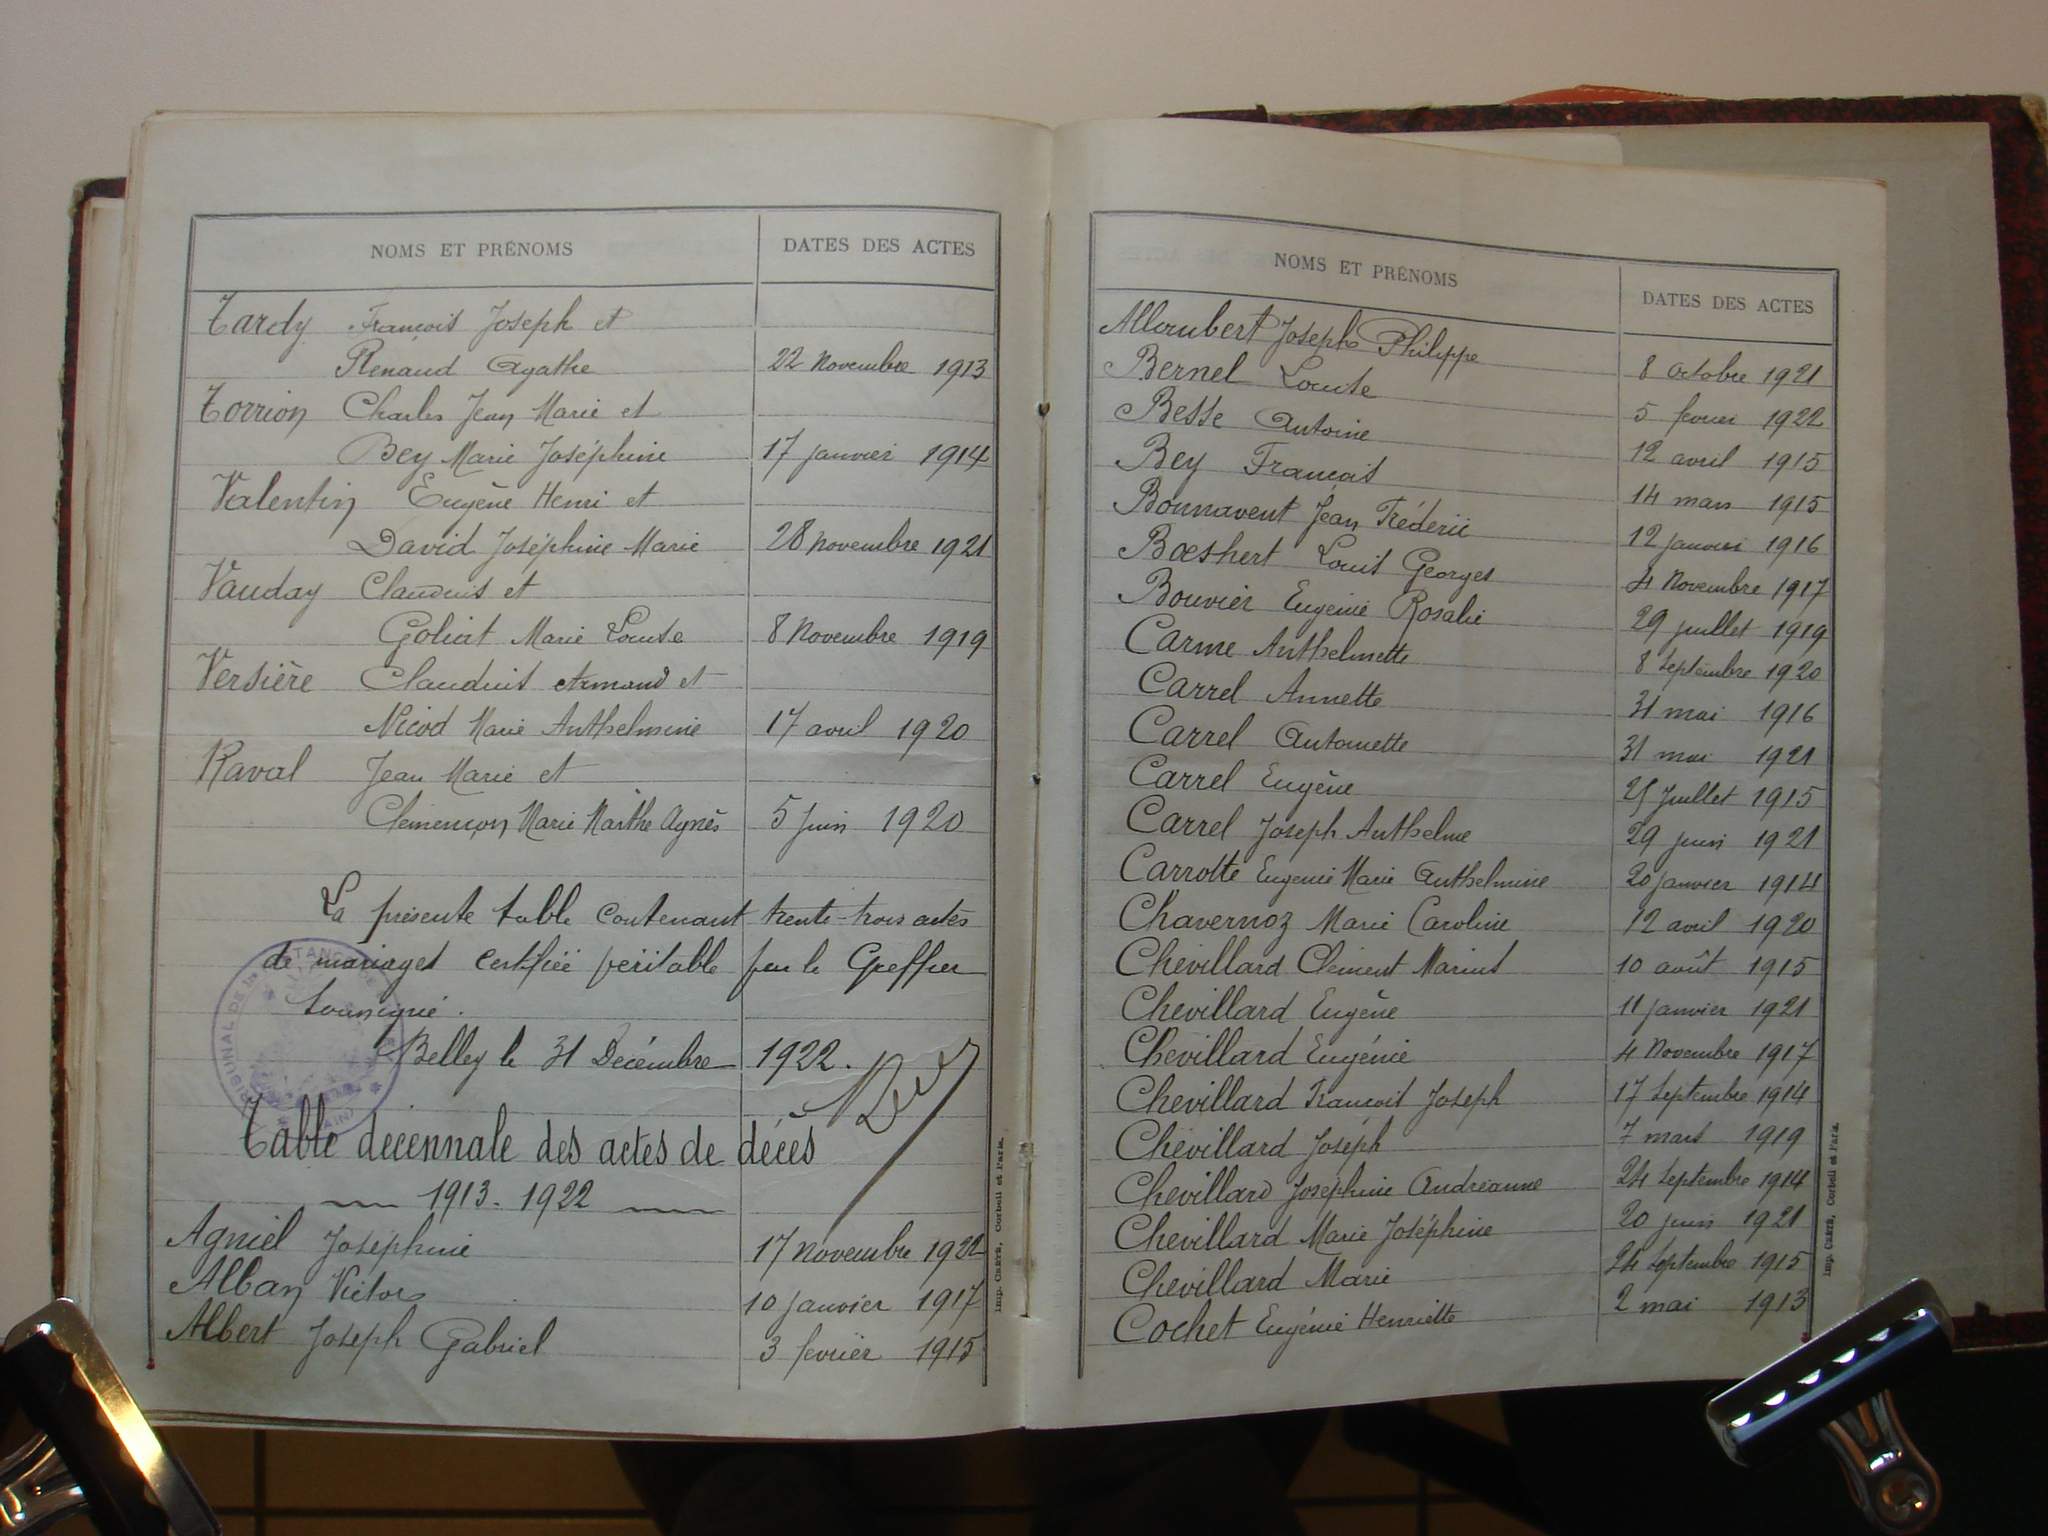 NOMS ET PRÉNOMS DATES DES ACTES
Tardy François Joseph et
Renaud Agathe 22 Novembre 1913
Torrion Charles Jean Marie et
Bey Marie Joséphine 17 janvier 1914
Valentin Eugène Henri et
David Joséphine Marie 28 novembre 1921
Vauday Claudius et
Goliat Marie Louise 8 Novembre 1919
Versière Claudius Armand et
Nicod Marie Anthelmine 17 avril 1920
Raval Jean Marie et
Clémençon Marie Marthe Agnès 5 juin 1920
La présente table contenant trente-trois actes
de mariages certifiée véritable par le Greffier
soussigné.
Belley le 31 Décembre 1922.
Table décennale des actes de décès
1913-1922
Agniel Joséphine 17 novembre 1922
Alban Victor 10 janvier 1917
Albert Joseph Gabriel 3 février 1915
Imp. Crété, Corbeil et Paris.
NOMS ET PRÉNOMS DATES DES ACTES
Alloubert Joseph Philippe 8 octobre 1921
Bernel Louise 5 février 1922
Besse Antoine 12 avril 1915
Bey François 14 mars 1915
Bonnavent Jean Fréderic 12 janvier 1916
Bœshert Louis Georges 4 Novembre 1917
Bouvier Eugénie Rosalie 29 juillet 1919
Carme Anthelmette 8 septembre 1920
Carrel Annette 31 mai 1916
Carrel Antoinette 31 mai 1921
Carrel Eugène 25 Juillet 1915
Carrel Joseph Anthelme 29 juin 1921
Carrotte Eugenie Marie Anthelmine 20 janvier 1914
Chavernoz Marie Caroline 12 avril 1920
Chevillard Clément Marius 10 août 1915
Chevillard Eugène 11 janvier 1921
Chevillard Eugénie 4 Novembre 1917
Chevillard François Joseph 17 septembre 1914
Chevillard Joseph 7 mars 1919
Chevillard Joséphine Andréanne 24 septembre 1914
Chevillard Marie Joséphine 20 juin 1921
Chevillard Marie 24 septembre 1915
Cochet Eugénie Henriette 2 mai 1913
Imp. Crété, Corbeil et Paris.